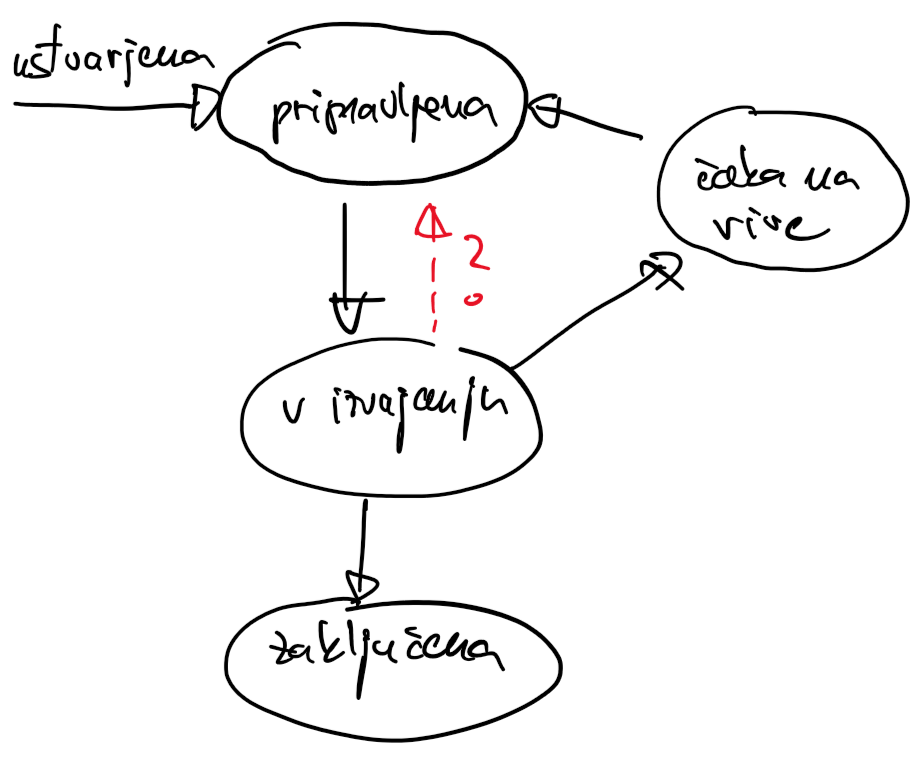 ustvarjena
pripravljena
čaka na
vire
?
v izvajanju
zaključena